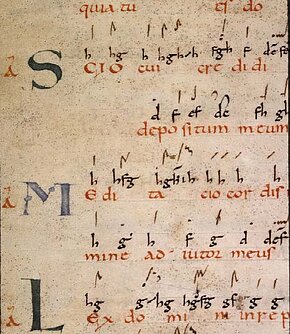 quia tu es do
a S h hg h h hgh h fgh f d def
CIO cui cre di di
d f ef de fh gh
depo si tum meum
a M h hfg h hgkh h h h h h
E di ta cio cor dis
h g h f g d def
mine ad iutor meus
L hg g hg hgfg gf g g
a Ex do mi ni in re p